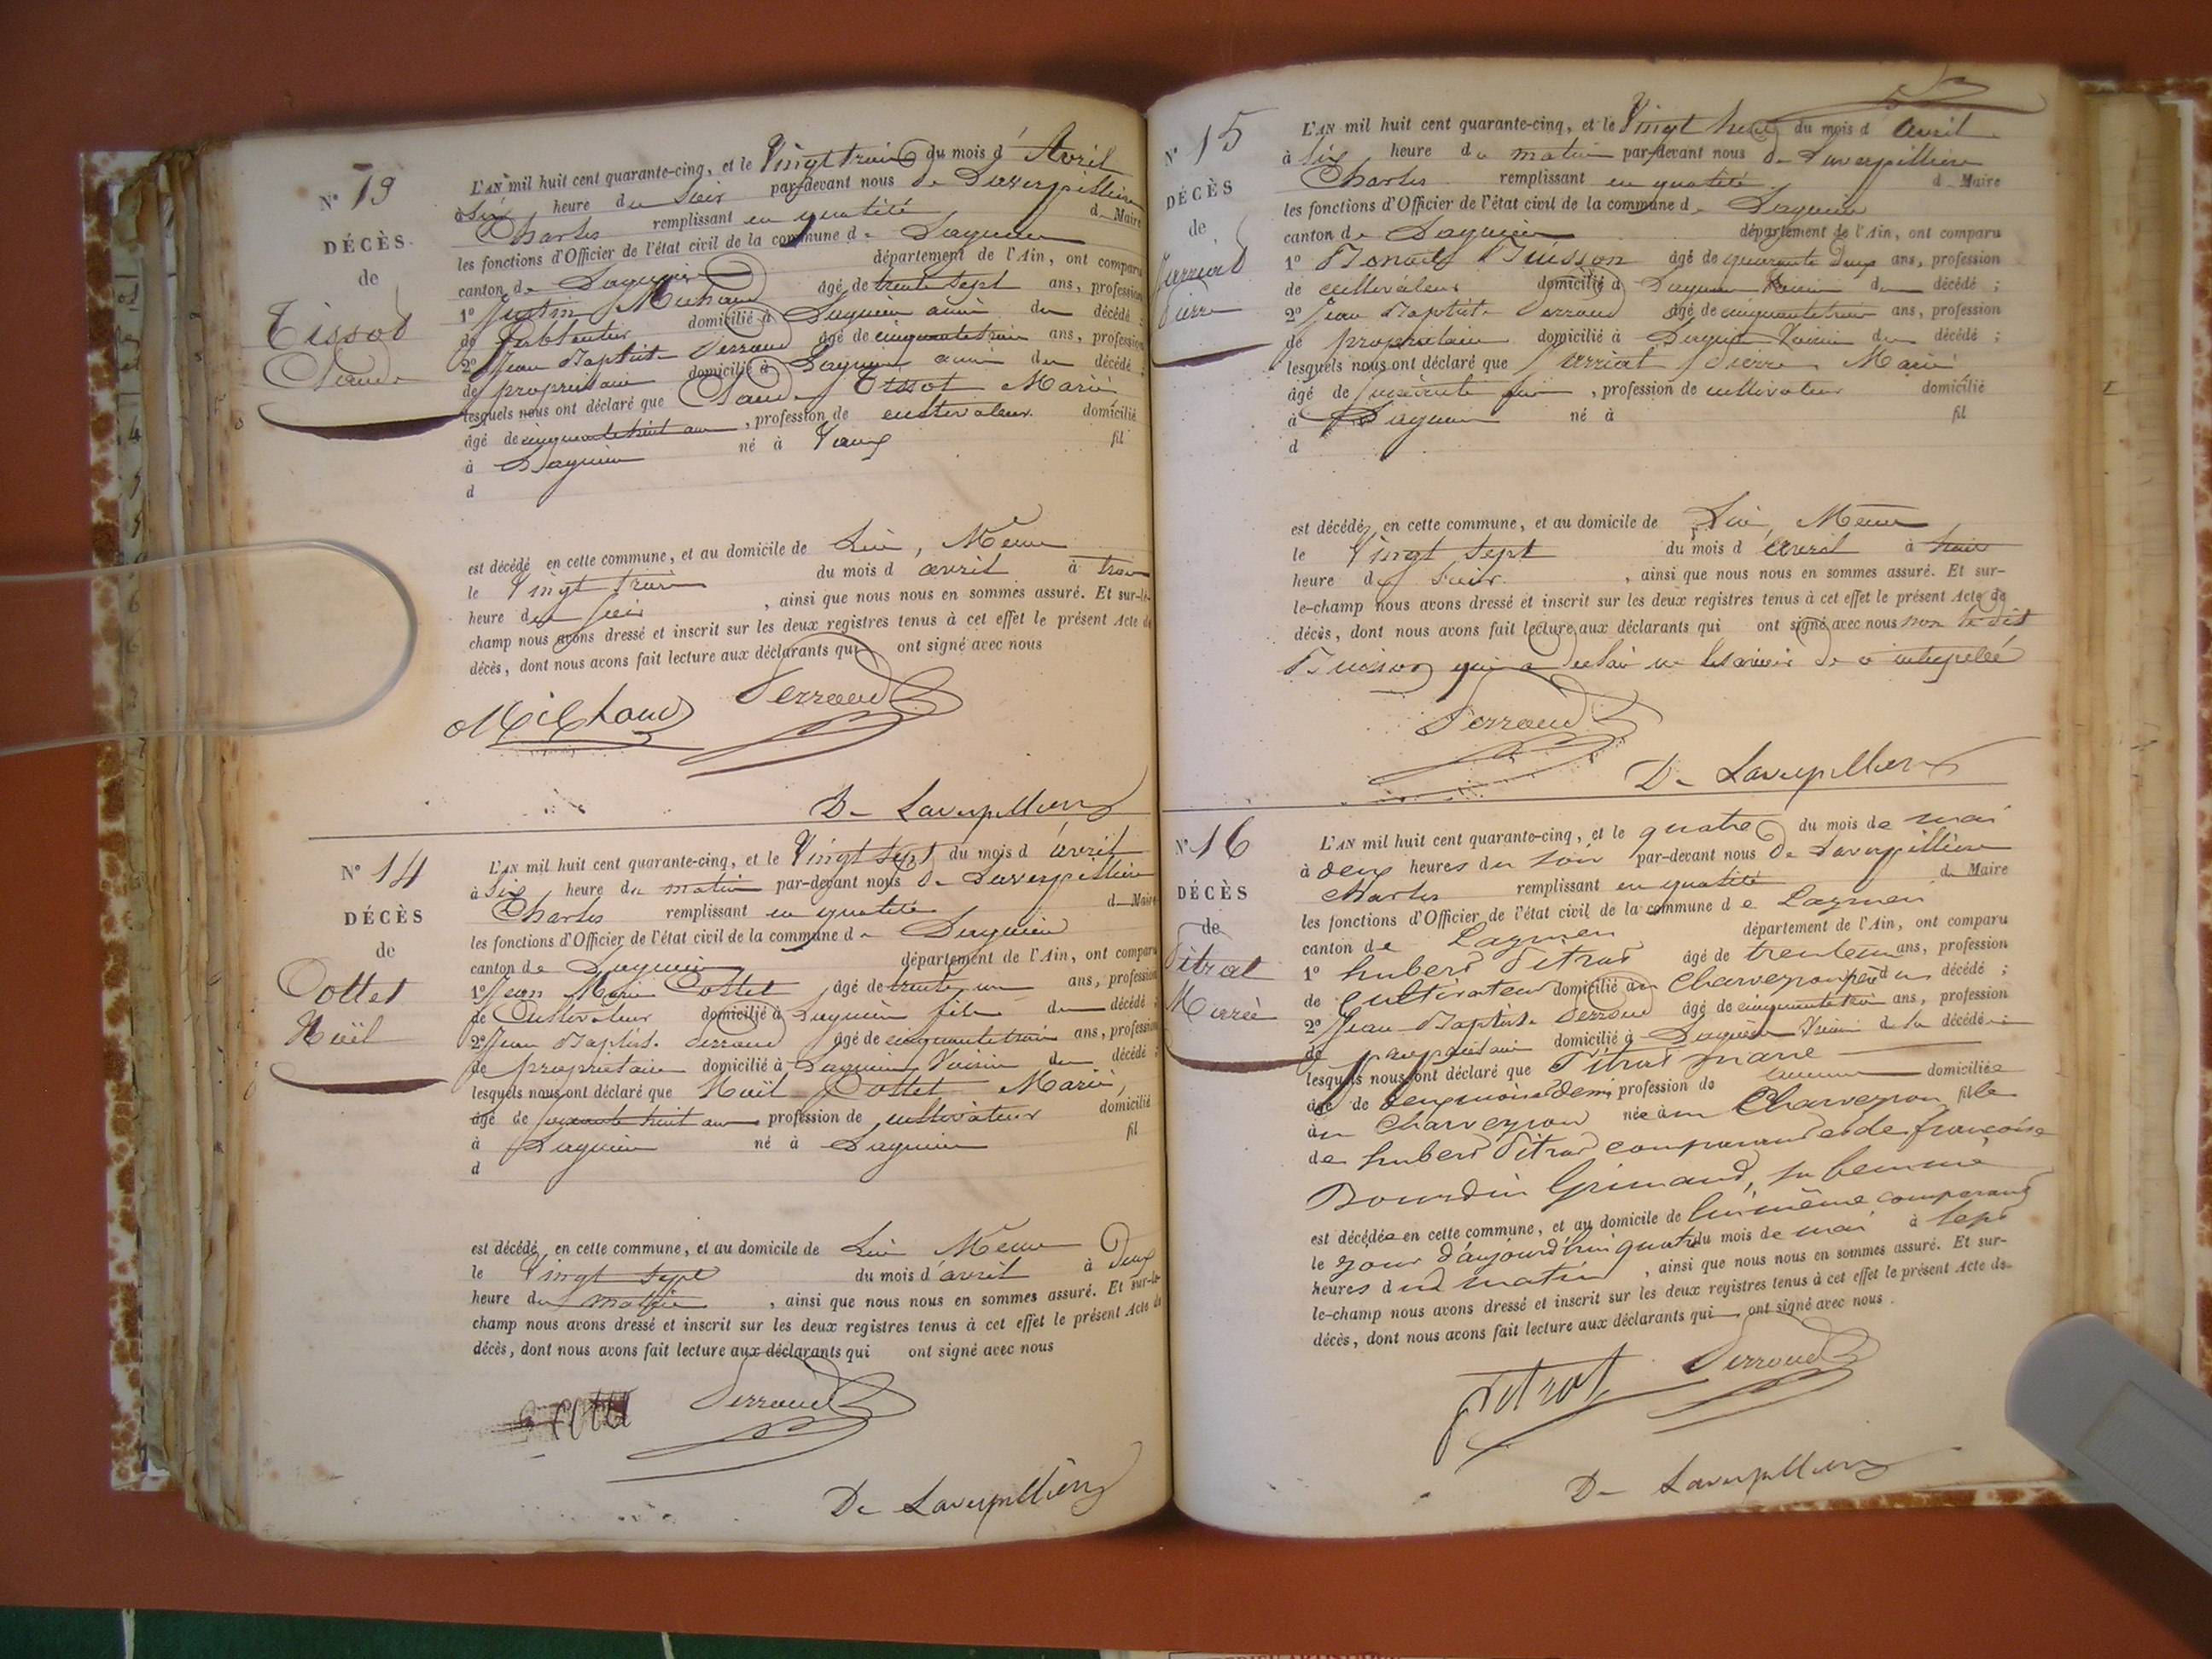 N° 13
DÉCÈS
de
Tissot
Claude
L'AN mil huit cent quarante-cinq, et le Vingt trois du mois d' Avril
à Six heure du Soir par-devant nous De Laverpillière
Charles remplissant en qualité de Maire
les fonctions d'Officier de l'état civil de la commune de Lagnieu
canton de Lagnieu département de l'Ain, ont comparu
1° Justin Michaud âgé de trente sept ans, profession
de domicilié à Lagnieu ami du décédé ;
2° Jean Baptiste Perraud âgé de cinquante trois ans, profession
de propriétaire domicilié à Lagnieu ami du décédé ;
lesquels nous ont déclaré que Claude Tissot Marié
âgé de cinquante huit ans, profession de cultivateur domicilié
à Lagnieu né à Vaux fil
d
est décédé en cette commune, et au domicile de Lui, Même
le Vingt trois du mois d avril à trois
heure du Soir, ainsi que nous nous en sommes assuré. Et sur-le-
champ nous avons dressé et inscrit sur les deux registres tenus à cet effet le présent Acte de
décès, dont nous avons fait lecture aux déclarants qui ont signé avec nous
Michaud Perraud
De Laverpillière
N° 14
DÉCÈS
de
Cottet
Noël
L'AN mil huit cent quarante-cinq, et le Vingt Sept du mois d' avril
à Six heure du matin par-devant nous De Laverpillière
Charles remplissant en qualité de Maire
les fonctions d'Officier de l'état civil de la commune de Lagnieu
canton de Lagnieu département de l'Ain, ont comparu
1° Jean Marie Cottet âgé de trente un ans, profession
de Cultivateur domicilié à Lagnieu fils du décédé ;
2° Jean Baptiste Perraud âgé de cinquante trois ans, profession
de propriétaire domicilié à Lagnieu Voisin du décédé ;
lesquels nous ont déclaré que Noël Cottet Marié,
âgé de soixante huit ans, profession de cultivateur domicilié
à Lagnieu né à Lagnieu fil
d
est décédé en cette commune, et au domicile de Lui Même
le Vingt Sept du mois d'avril à Deux
heure du matin, ainsi que nous nous en sommes assuré. Et sur-le-
champ nous avons dressé et inscrit sur les deux registres tenus à cet effet le présent Acte de
décès, dont nous avons fait lecture aux déclarants qui ont signé avec nous
Perraud
De Laverpillière
N° 15
DÉCÈS
de
Pierre
L'AN mil huit cent quarante-cinq, et le Vingt huit du mois d avril
à Six heure du matin par-devant nous de Laverpillière
Charles remplissant en qualité de Maire
les fonctions d'Officier de l'état civil de la commune de Lagnieu
canton de Lagnieu département de l'Ain, ont comparu
1° Benoit Buisson âgé de quarante deux ans, profession
de cultivateur domicilié à Lagnieu du décédé ;
2° Jean Baptiste Perraud âgé de cinquante trois ans, profession
de propriétaire domicilié à Lagnieu Voisin du décédé ;
lesquels nous ont déclaré que Pierre Marié
âgé de soixante, profession de cultivateur domicilié
à Lagnieu né à fil
d
est décédé en cette commune, et au domicile de Lui, Même
le Vingt Sept du mois d avril à
heure du Soir, ainsi que nous nous en sommes assuré. Et sur-
le-champ nous avons dressé et inscrit sur les deux registres tenus à cet effet le présent Acte de
décès, dont nous avons fait lecture aux déclarants qui ont signé avec nous non le dit
Buisson qui a déclaré ne le savoir de ce interpellé
Perraud
De Laverpillière
N° 16
DÉCÈS
de
Pitrat
Marie
L'AN mil huit cent quarante-cinq, et le quatre du mois de mai
à deux heures du soir par-devant nous De Laverpillière
Charles remplissant en qualité de Maire
les fonctions d'Officier de l'état civil de la commune de Lagnieu
canton de Lagnieu département de l'Ain, ont comparu
1° hubert Pitrat âgé de ans, profession
de Cultivateur domicilié au Charveyron père du décédé ;
2° Jean Baptiste Perraud âgé de cinquante trois ans, profession
de propriétaire domicilié à Lagnieu Voisin de la décédée ;
lesquels nous ont déclaré que Pitrat marie
âgé de deux mois et demi profession de aucune domiciliée
au Charveyron née au Charveyron fille
de hubert Pitrat comparant et de françoise
Bourdin Grimaud, sa femme
est décédée en cette commune, et au domicile de lui même comparant
le jour d'aujourd'hui quatre du mois de mai à sept
heures du matin, ainsi que nous nous en sommes assuré. Et sur-
le-champ nous avons dressé et inscrit sur les deux registres tenus à cet effet le présent Acte de
décès, dont nous avons fait lecture aux déclarants qui ont signé avec nous.
Pitrat Perraud
De Laverpillière